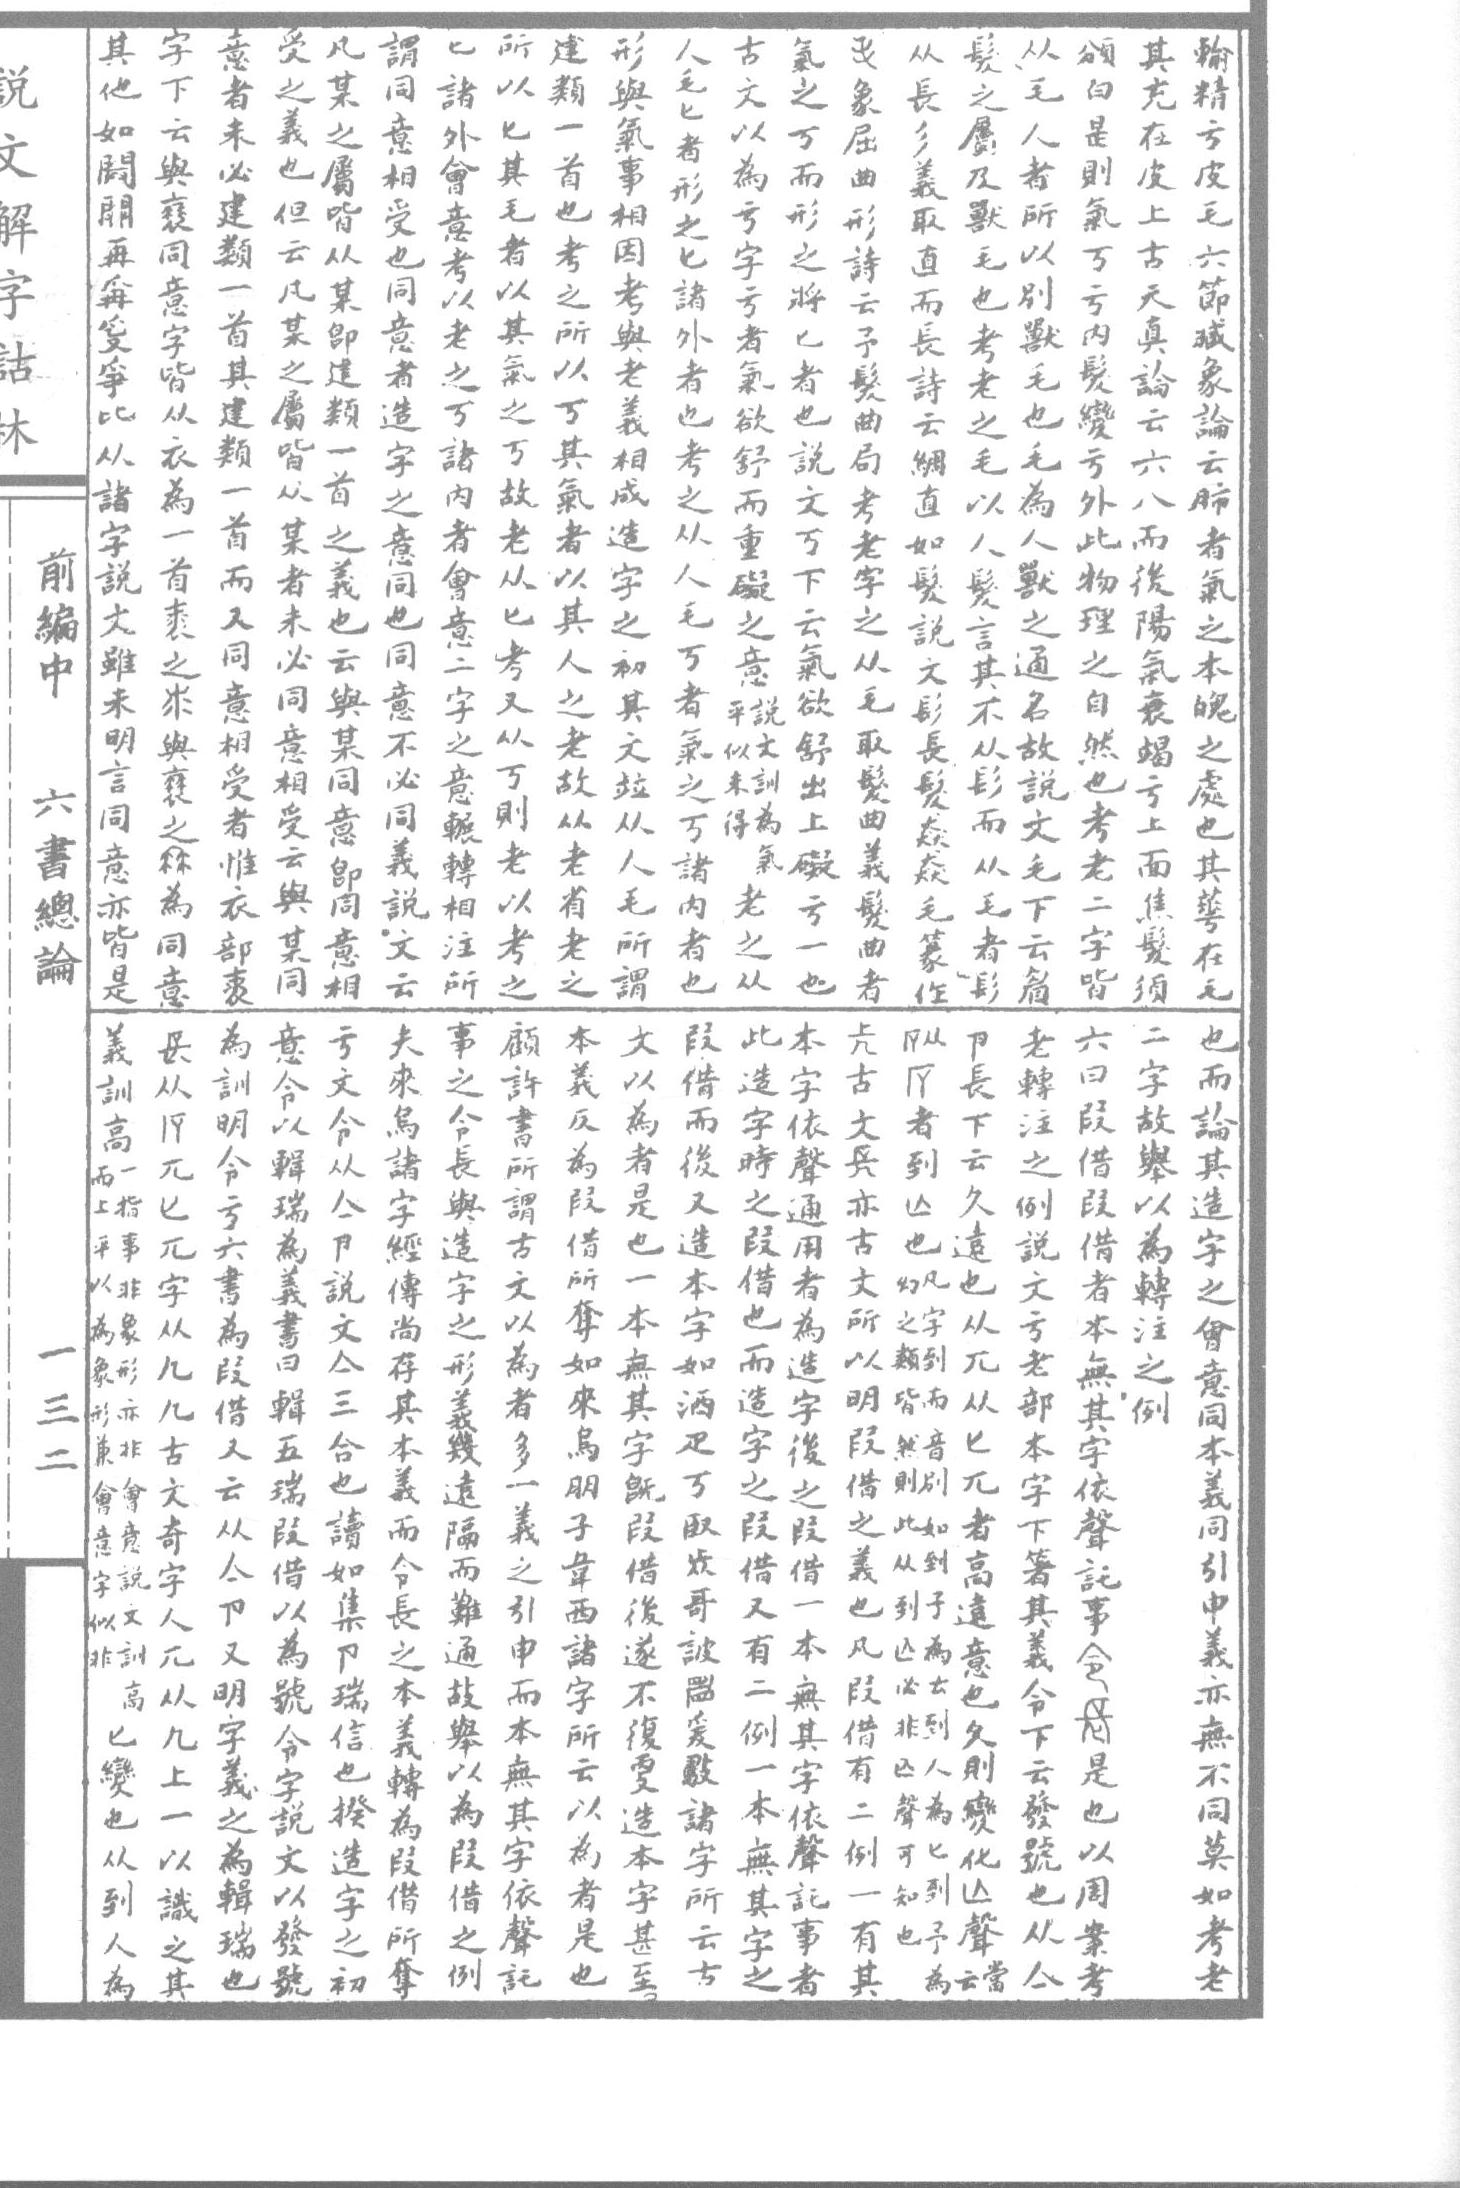 輸精亏皮毛六節臧象論云肺者氣之本魄之處也其華在毛
其充在皮上古天真論云六八而後陽氣衰竭亏上面焦髮須
頒白是則氣丂亏內髮變亏外此物理之自然也考老二字皆
从毛人者所以別獸毛也毛為人獸之通名故說文毛下云睂
髮之屬及獸毛也考老之毛以人髮言其不从髟而从毛者髟
从長彡義取直而長詩云綢直如髮說文髟長髮猋猋毛篆作
象屈曲形詩云予髮曲局考老字之从毛取髮曲義髮曲者
氣之丂而形之將匕者也說文丂下云氣欲舒出上礙亏一也
古文以為亏字亏者氣欲舒而重礙之意說文訓為氣平似未得老之从
人毛匕者形之匕諸外者也考之从人毛丂者氣之丂諸內者也
形與氣事相因考與老義相成造字之初其文竝从人毛所謂
建類一首也考之所以丂其氣者以其人之老故从老省老之
所以匕其毛者以其氣之丂故老从匕考又从丂則老以考之
匕諸外會意考以老之丂諸內者會意二字之意輾轉相注所
謂同意相受也同意者造字之意同也同意不必同義說文云
凡某之屬皆从某卽建類一首之義也云與某同意卽同意相
受之義也但云凡某之屬皆从某者未必同意相受云與某同
意者未必建類一首其建類一首而又同意相受者惟衣部衰
字下云與襃同意字皆从衣為一首衰之與襃之為同意
其他如鬭鬬再爯爭比从諸字說文雖未明言同意亦皆是
也而論其造字之會意同本義同引申義亦無不同莫如考老
二字故舉以為轉注之例
六曰叚借叚借者本無其字依聲託事令是也以周案考
老轉注之例說文亏老部本字下箸其義令下云發號也从亼
卪長下云久遠也从兀从匕兀者高遠意也久則變化亾聲云當
从者到亾也凡字到而音別如到子為𠫓到人為匕到予為幻之類皆然則此从到亾必非亾聲可知也
古文長亦古文所以明叚借之義也凡叚借有二例一有其
本字依聲通用者為造字後之叚借一本無其字依聲託事者
此造字時之叚借也而造字之叚借又有二例一本無其字之
叚借而後又造本字如洒疋丂臤哥詖爰諸字所云古
文以為者是也一本無其字旣叚借後遂不復叓造本字甚至
本義反為叚借所奪如來烏朋子韋西諸字所云以為者是也
顧許書所謂古文以為者多一義之引申而本無其字依聲託
事之令長與造字之形義幾遠隔而難通故舉以為叚借之例
夫來烏諸字經傳尚存其本義而令長之本義轉為叚借所奪
亏文令从亼卪說文亼三合也讀如集卪瑞信也揆造字之初
意令以輯瑞為義書曰輯五瑞叚借以為號令字說文以發號
為訓明令亏六書為叚借又云从亼卪又明字義之為輯瑞也
从兀匕兀字从几几古文奇字人兀从几上一以識之其
義訓高一指事非象形亦非會意說文訓高而上平以為象形兼會意字似非匕變也从到人為
說文解字詁林
前編中 六書總論 一三二